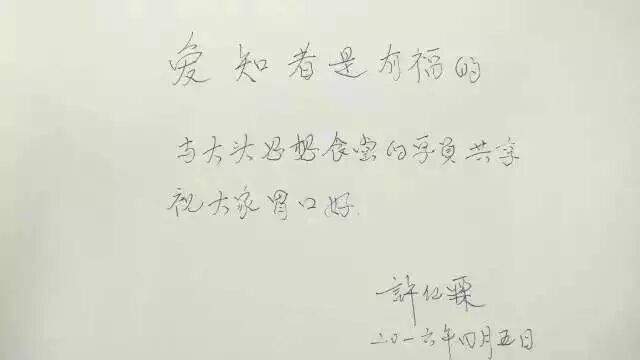 爱知者是有福的
与大头好想食堂的学员共享
祝大家胃口好.
許纪霖
二〇一六年四月五日